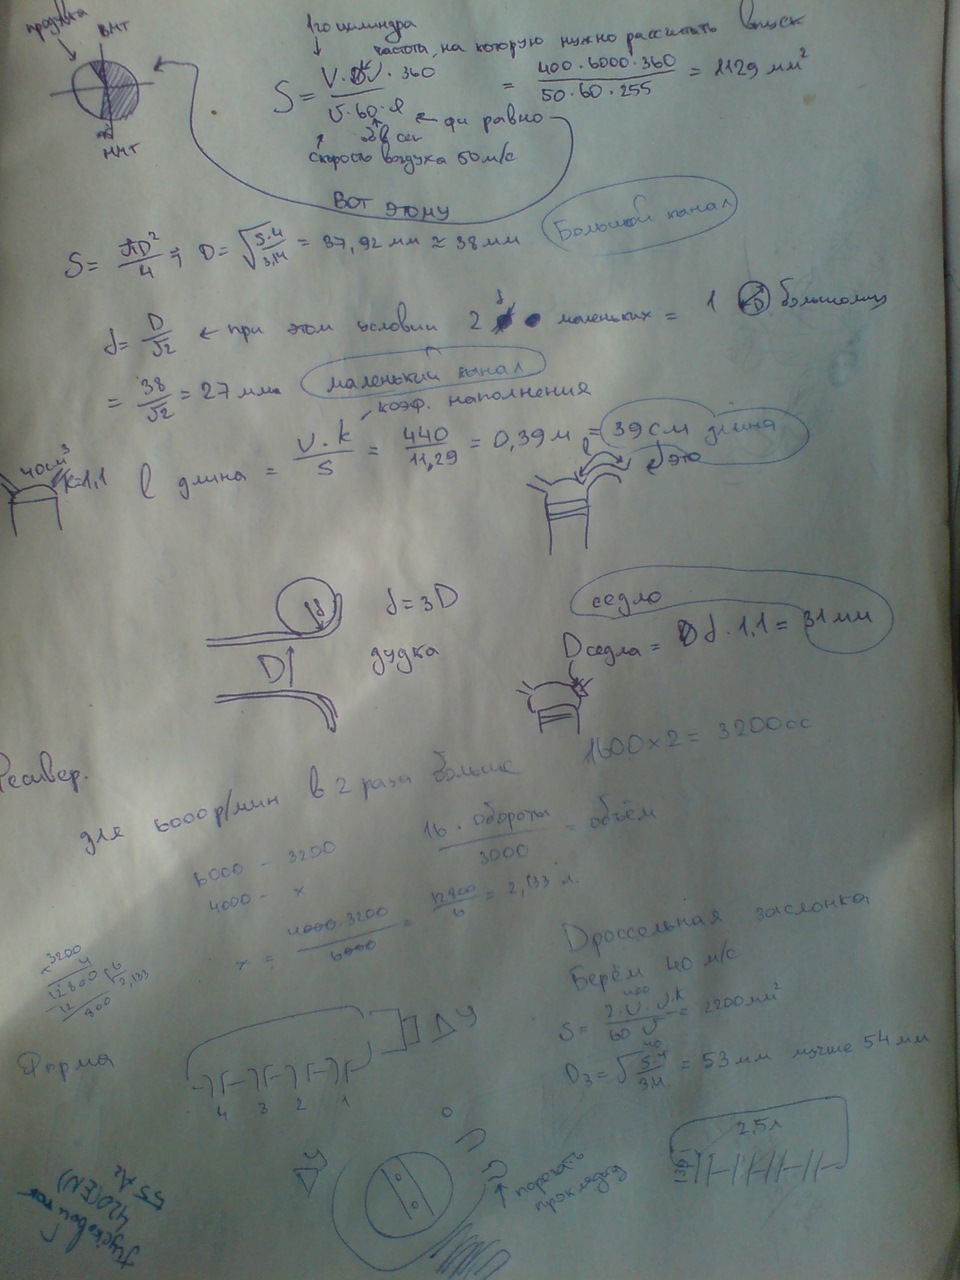 продувка
ВМТ
НМТ
1го цилиндра
частота, на которую нужно рассчитать впуск
S = V · N · 360 / V · 60 · φ = 400 · 6000 · 360 / 50 · 60 · 255 = 1129 мм²
← фи равно
в сек
скорость воздуха 50 м/с
Вот этому
S = πD² / 4 ; D = √(S·4 / 3,14) = 37,92 мм ≈ 38 мм
Большой канал
d = D / √2 ← при этом условии 2 маленьких = 1 большому
= 38 / √2 = 27 мм
маленький канал
коэф. наполнения
40 см³
k=1,1
l длина = V · k / S = 440 / 11,29 = 0,39 м = 39 см длина
l это
d = 3D
дудка
D
седло
D седла = d · 1,1 = 31 мм
Ресивер.
для 6000 р/мин в 2 раза больше
1600 × 2 = 3200 cc
6000 – 3200
4000 – x
16 · обороты / 3000 = объём
x = 4000 · 3200 / 6000 = 12800 / 6 = 2,133 л.
3200
4
12800
6
12
2,133
800
Дроссельная заслонка
Берём 40 м/с
S = = 2200 мм²
Dз = √(S·4 / 3,14) = 53 мм лучше 54 мм
Форма
ДУ
4 3 2 1
2,5 л
ДУ
порезать
прокладку
Пусковой ток
420 (EN)
55 Az